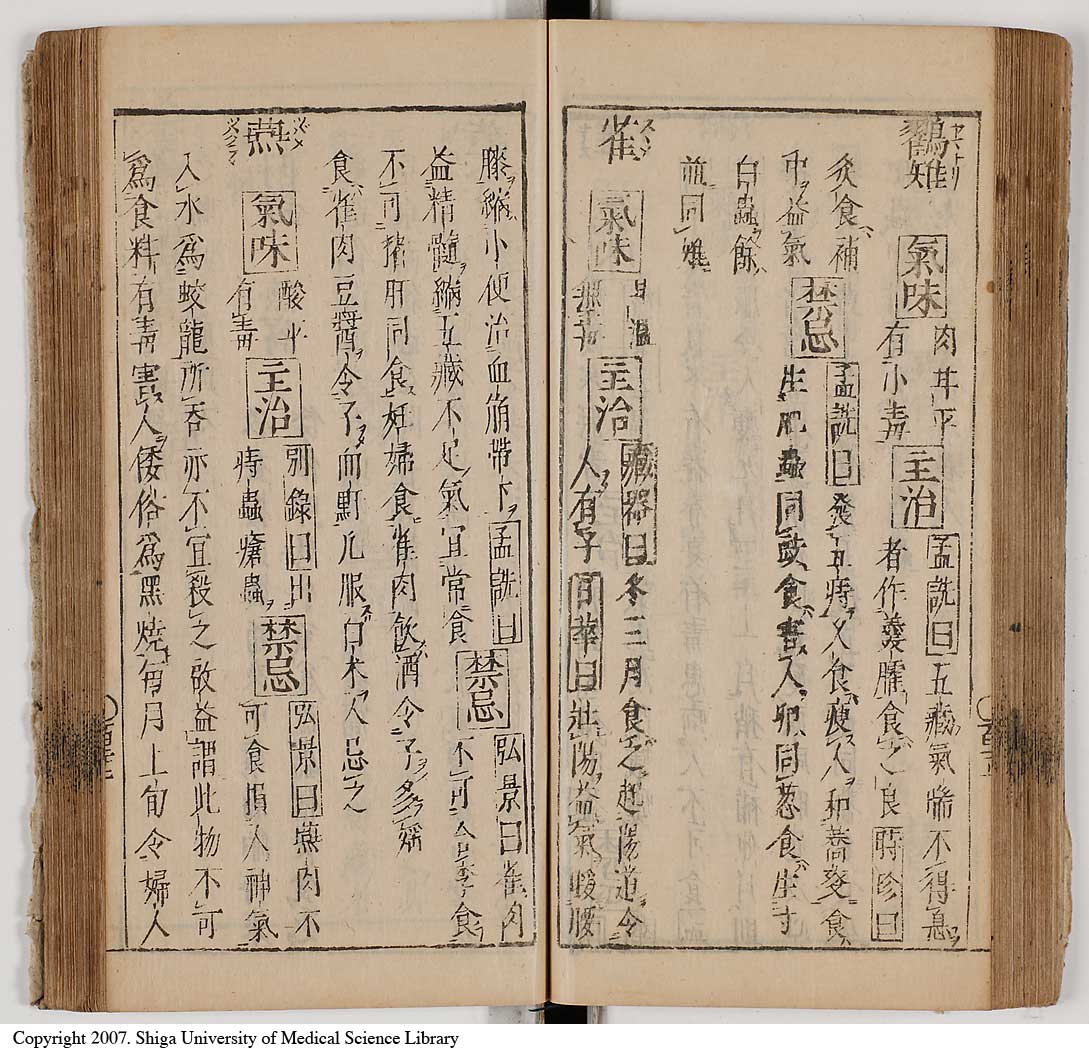 鸐雉 氣味 肉甘平有小毒 主治 孟詵曰五藏氣喘不得息
者作羹臛食之良 時珍曰
炙食補
中益氣 禁忌 孟詵曰發五痔久食瘦人和蕎麥食
生肥蟲同豉食害人卵同葱食生寸
白蟲餘
並同雉
雀 氣味 甘溫無毒 主治 藏器曰冬三月食之起陽道令
人有子日華曰壯陽益氣暖腰
膝縮小便治血崩帶下孟詵曰
益精髓續五藏不足氣宜常食 禁忌 弘景曰雀肉
不可合李食
不可猪肝同食妊婦食雀肉飲酒令子多婬
食雀肉豆醬令子面䵟凡服白木人忌之
燕 氣味 酸平有毒 主治 別錄曰出痔蟲瘡蟲 禁忌 弘景曰燕肉不
可食損人神氣
入水爲蛟龍所吞亦不宜殺之故益謂此物不可
爲食料有毒害人倭俗爲黑燒每月上旬令婦人
Copyright 2007. Shiga University of Medical Science Library